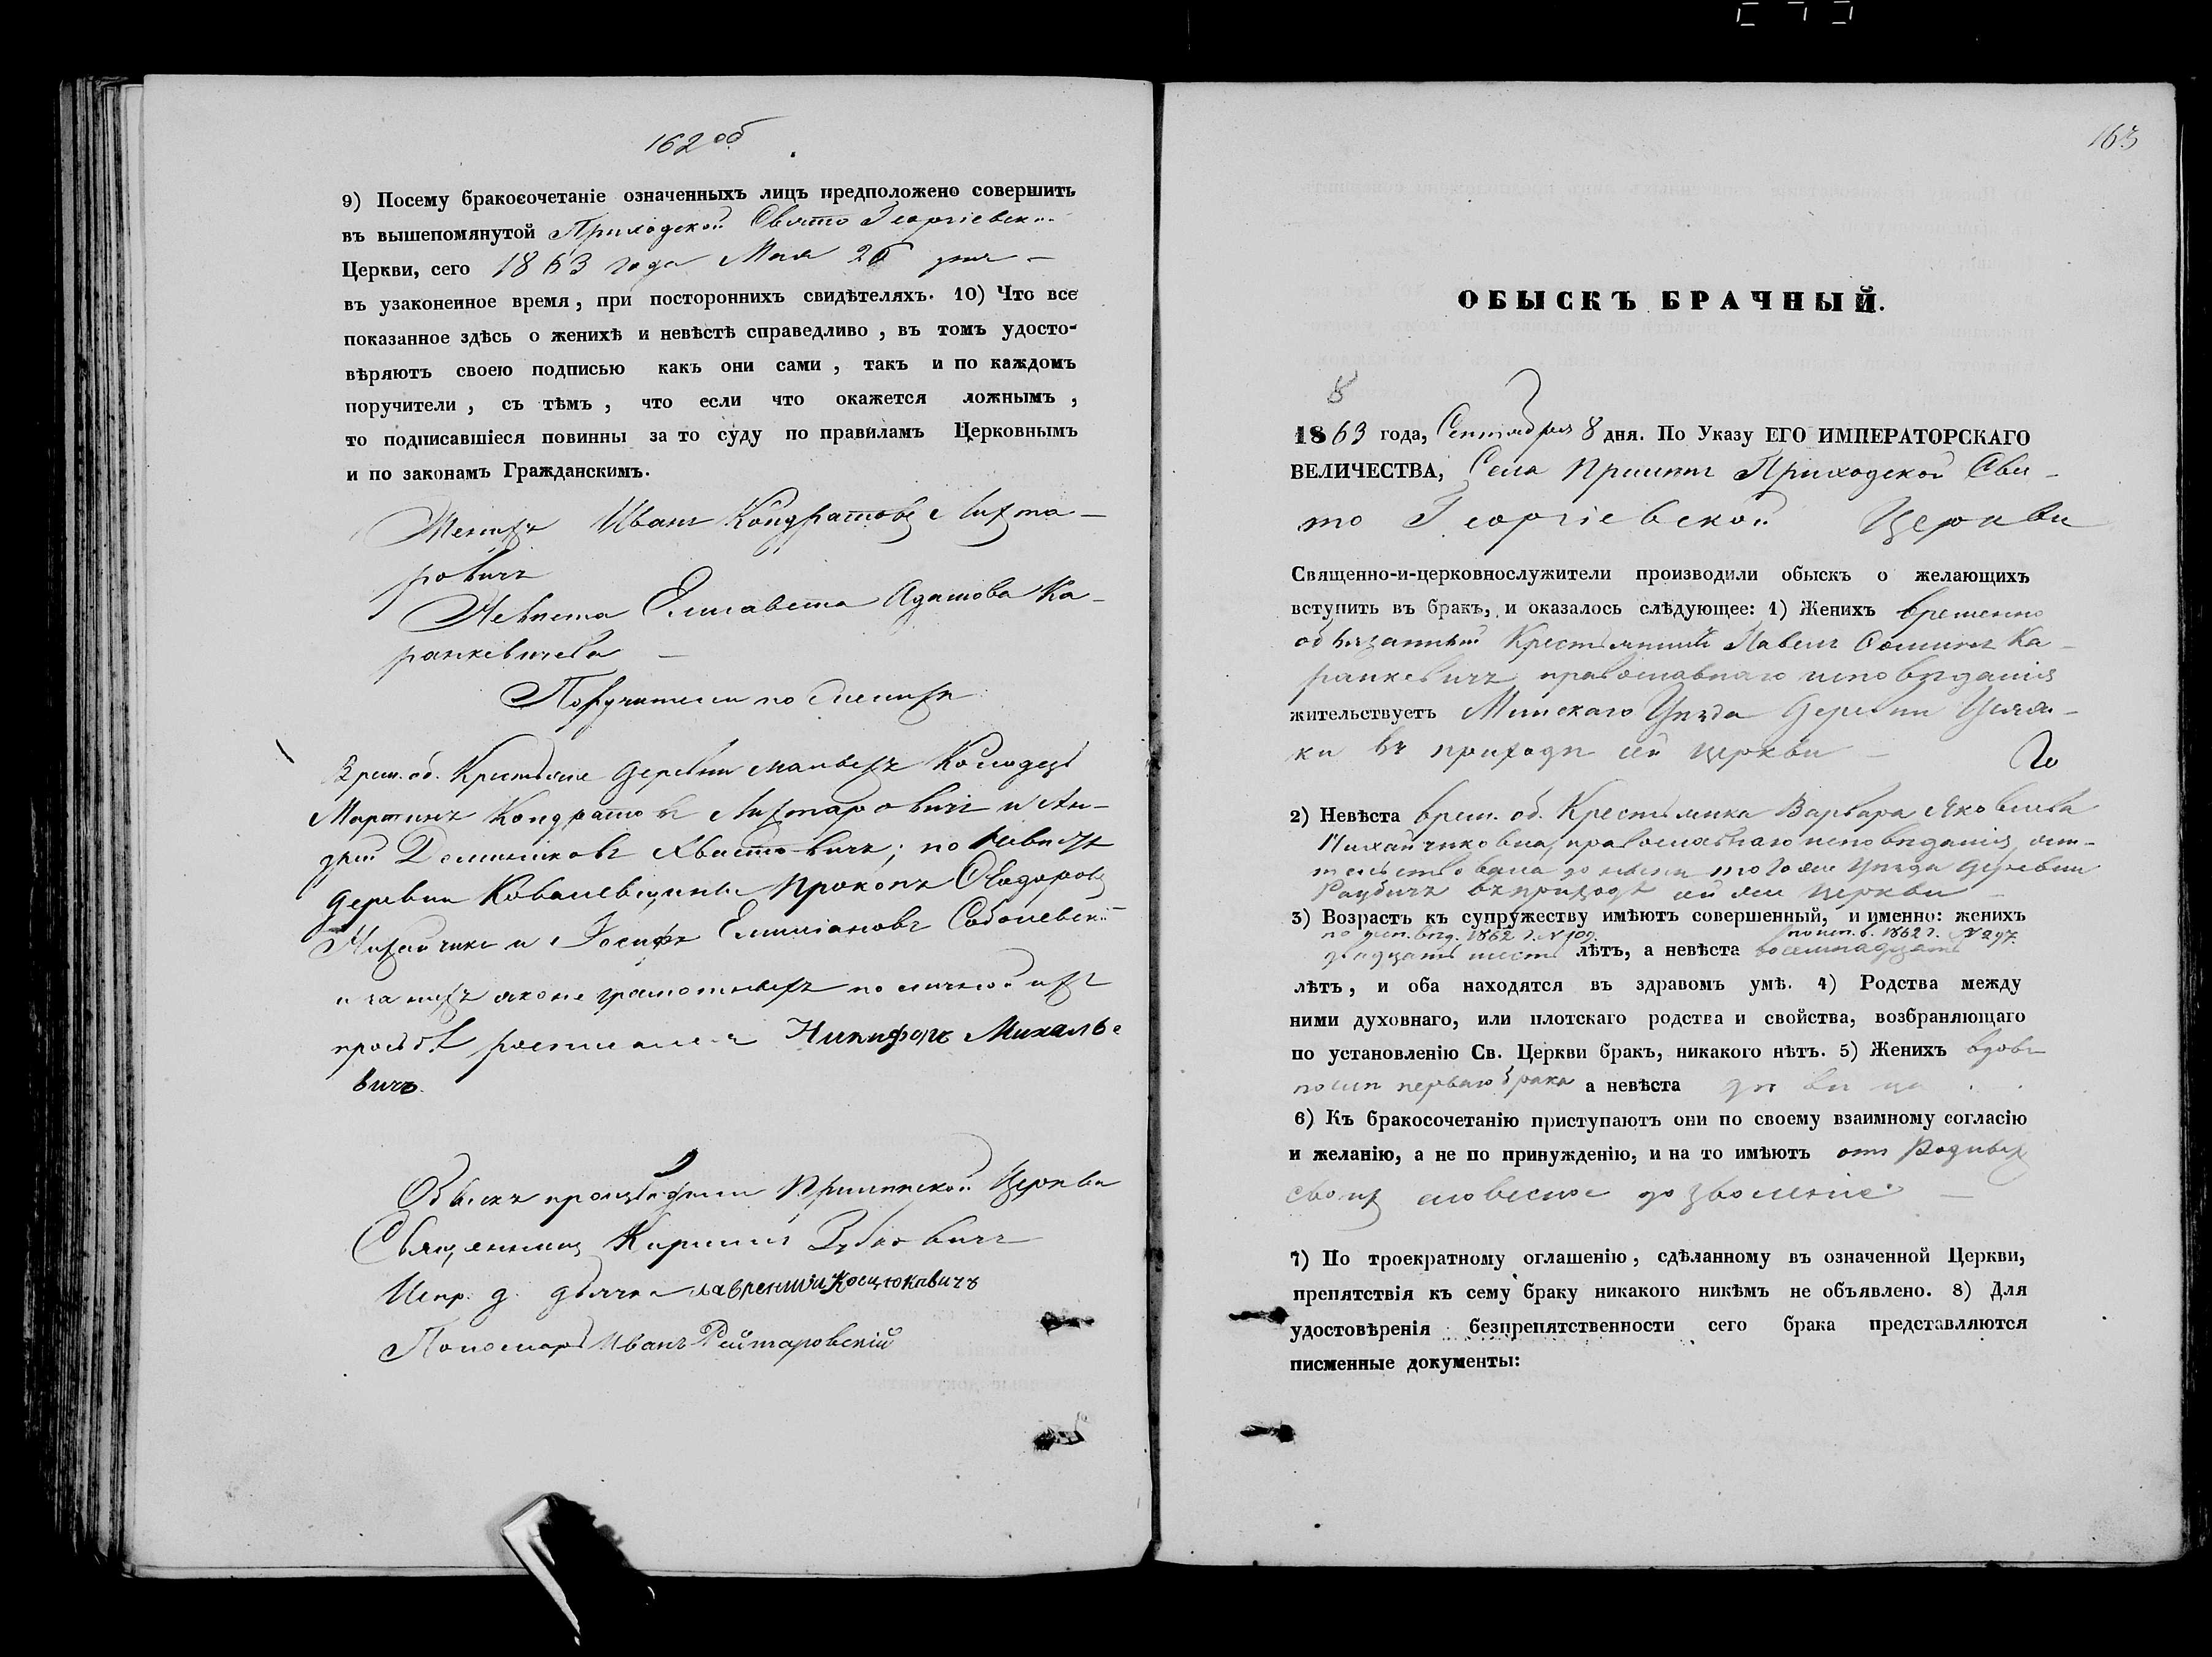 162 об
9) Посему бракосочетаніе означенныхъ лицъ предположено совершить
въ вышепомянутой Приходской Свято Георгіевской
Церкви, сего 1863 года Мая 26 дня —
въ узаконенное время, при постороннихъ свидѣтеляхъ. 10) Что все
показанное здѣсь о женихѣ и невѣстѣ справедливо, въ томъ удосто-
вѣряютъ своею подписью какъ они сами, такъ и по каждомъ
поручители, съ тѣмъ, что если что окажется ложнымъ,
то подписавшіеся повинны за то суду по правиламъ Церковнымъ
и по законамъ Гражданскимъ.
Женихъ Иванъ Кондратовъ Лихта-
ровичъ
Невѣста Елисавета Адамова Ка-
ранкевичева —
Поручители по женихѣ
Врем. об. Крестьяне деревни Колодезь
Мартинъ Кондратовъ Лихтаровичъ и Ан-
дрей Доминиковъ Хвастовичъ; по невѣстѣ
деревни Ковалевщины Прокопъ Ѳеодоровъ
Михайчикъ и Іосифъ Емиліановъ Соболевскій
и за нихъ яко не грамотныхъ по личной ихъ
прозьбѣ росписался Никифоръ Михалье
вичъ.
Обыскъ производили Прилепской Церкви
Священникъ Кириллъ Зубковичъ
Испр. д. дьячка Лаврентій Косцюкавичъ
Пономарь Иванъ Рейтаровскій
163
ОБЫСКЪ БРАЧНЫЙ.
8
1863 года, Сентября 8 дня. По Указу ЕГО ИМПЕРАТОРСКАГО
ВЕЛИЧЕСТВА, Села Прилепъ Приходской Свя-
то Георгіевской Церкви
Священно-и-церковнослужители производили обыскъ о желающихъ
вступить въ бракъ, и оказалось слѣдующее: 1) Женихъ временно
обязанный Крестьянинъ Павелъ Ѳоминъ Ка-
ранкевичъ православнаго исповѣданія
жительствуетъ Минскаго Уѣзда деревни
ки въ приходѣ сей церкви —
2) Невѣста врем. об. Крестьянка Варвара Яковлева
Михайчиковна, православнаго исповѣданія, жи-
тельствовала до нынѣ того же Уѣзда деревни
Раубичъ въ приходѣ сей же церкви —
3) Возрастъ къ супружеству имѣютъ совершенный, и именно: женихъ
по исп. вѣд. 1862 г. № 109. по исп. в. 1862 г. № 297.
двадцать шесть лѣтъ, а невѣста восемнадцать
лѣтъ, и оба находятся въ здравомъ умѣ. 4) Родства между
ними духовнаго, или плотскаго родства и свойства, возбраняющаго
по установленію Св. Церкви бракъ, никакого нѣтъ. 5) Женихъ вдовъ
послѣ перваго брака а невѣста дѣвица
6) Къ бракосочетанію приступаютъ они по своему взаимному согласію
и желанію, а не по принужденію, и на то имѣютъ отъ Родныхъ
своихъ словесное дозволеніе —
7) По троекратному оглашенію, сдѣланному въ означенной Церкви,
препятствія къ сему браку никакого никѣмъ не объявлено. 8) Для
удостовѣренія безпрепятственности сего брака представляются
писменные документы: